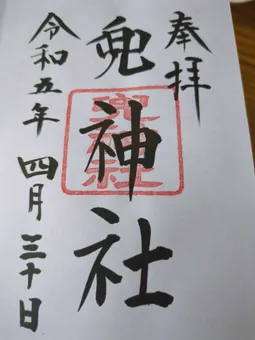 奉拝
兜神社
令和五年 四月三十日